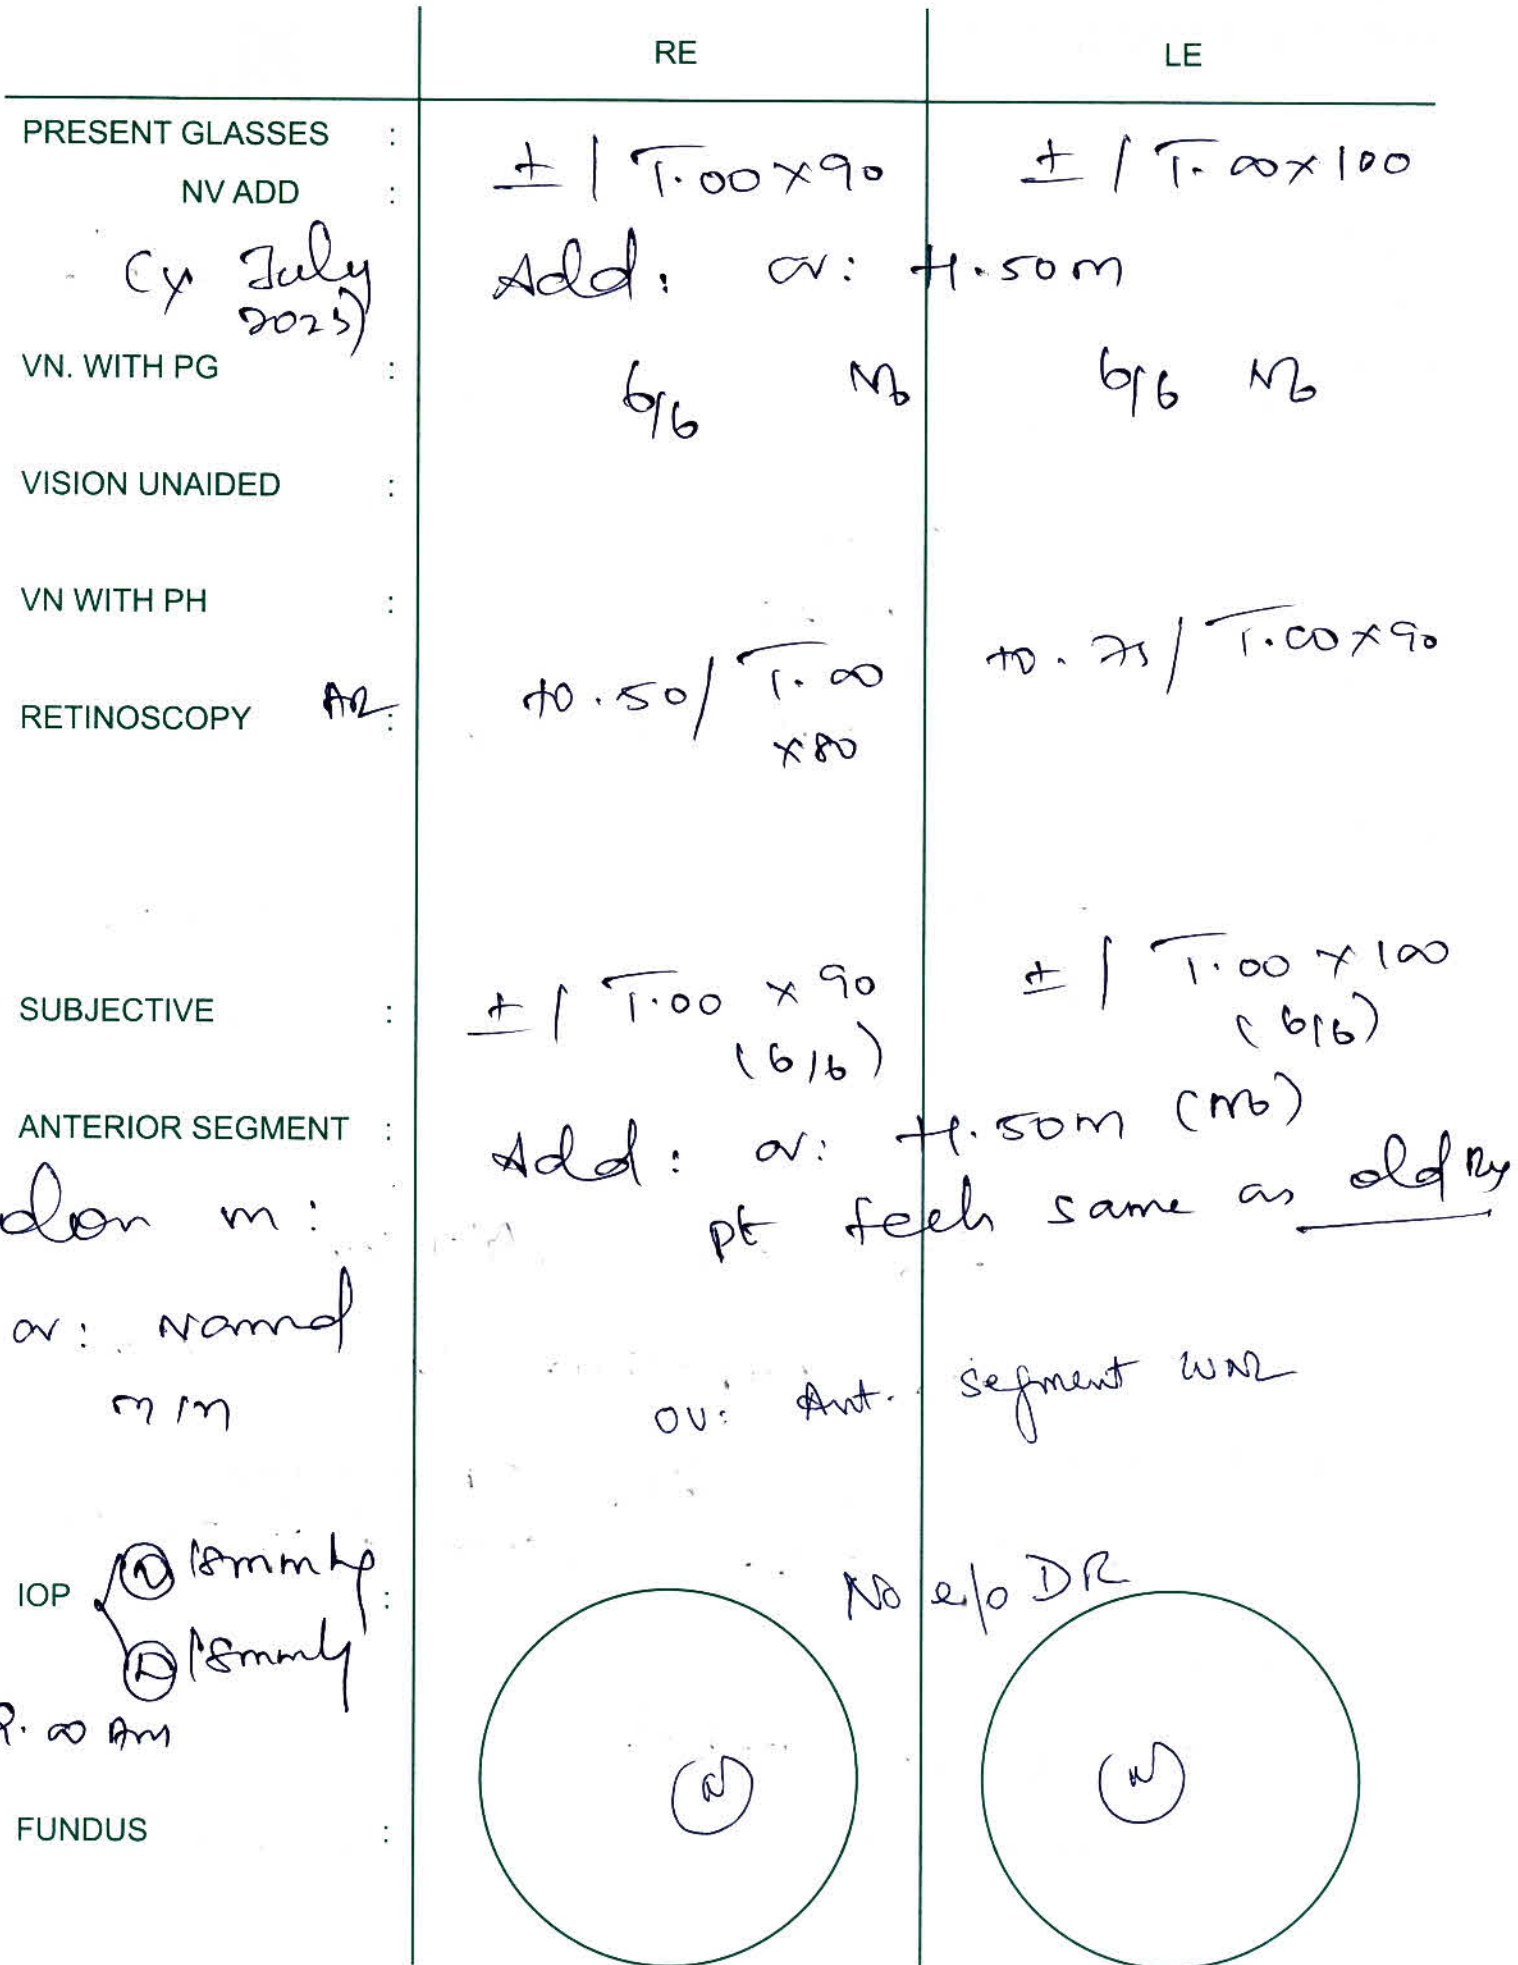 RE LE
PRESENT GLASSES : ± / 1.00 x 90 ± / 1.00 x 100
NV ADD :
July 2023) Add: OU: +1.50 m
VN. WITH PG : 6/6 N6 6/6 N6
VISION UNAIDED :
VN WITH PH :
RETINOSCOPY AR : +0.50 / 1.00 x 80 +0.75 / 1.00 x 90
SUBJECTIVE : ± / 1.00 x 90 (6/6) ± / 1.00 x 100 (6/6)
ANTERIOR SEGMENT : Add: OU: +1.50 m (N6)
pt feels same as old Rx
m:
OU: Normal
OU: Ant. segment WNL
IOP : 18mmHg
18mmHg
No e/o DR
.00 Am
N N
FUNDUS :